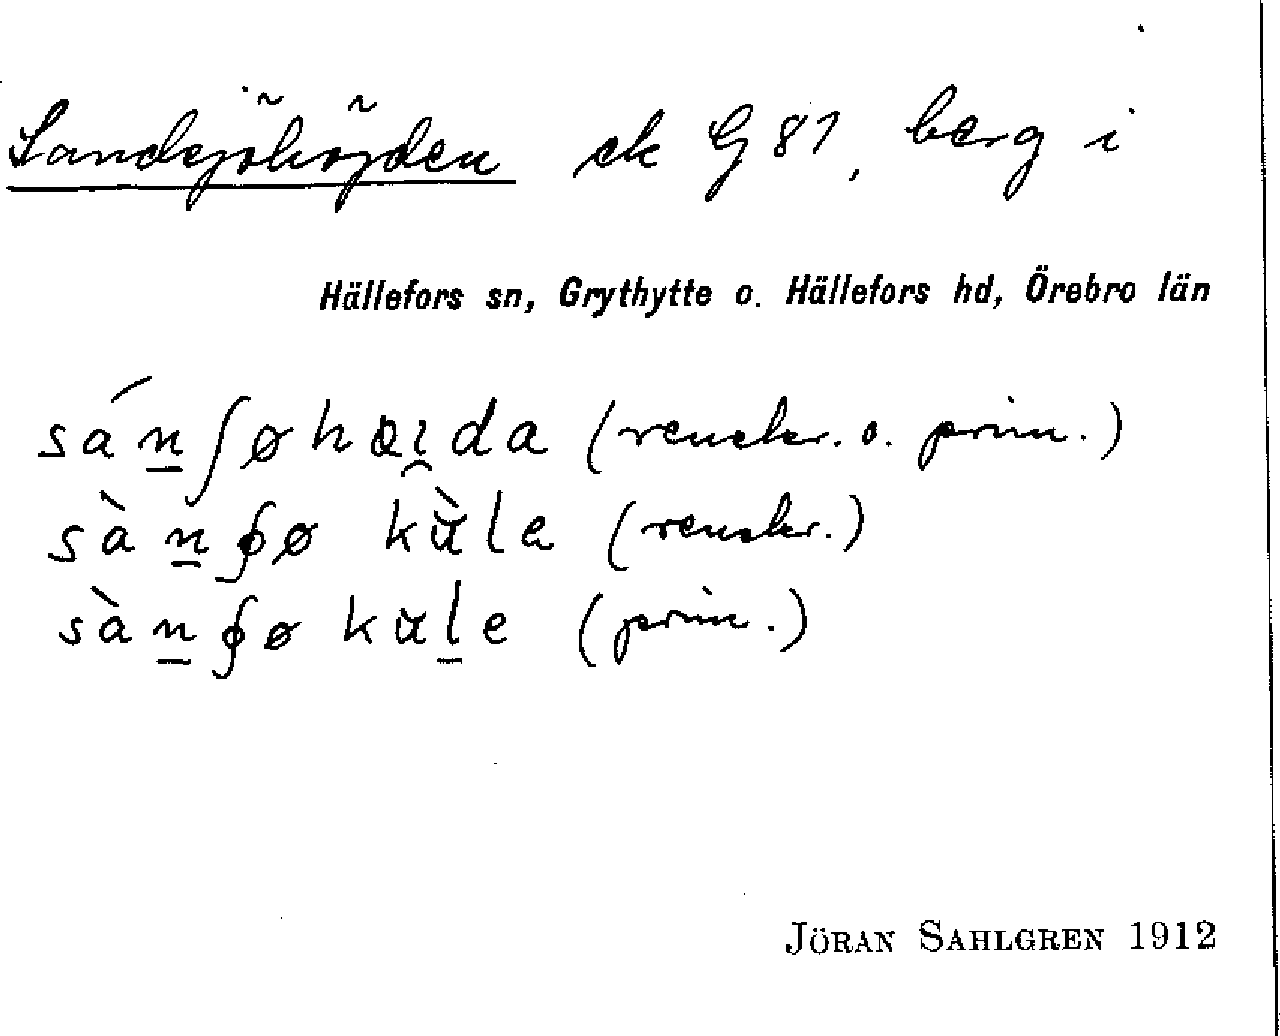 Sandsjöhöjden ek G 81, berg i
Hällefors sn, Grythytte o. Hällefors hd, Örebro län
sán̲ʃøhɑɪ̯da (renskr. o. prim.)
sàn̲ʃø kù̈la (renskr.)
sàn̲ʃø kul̲e (prim.)
JÖRAN SAHLGREN 1912